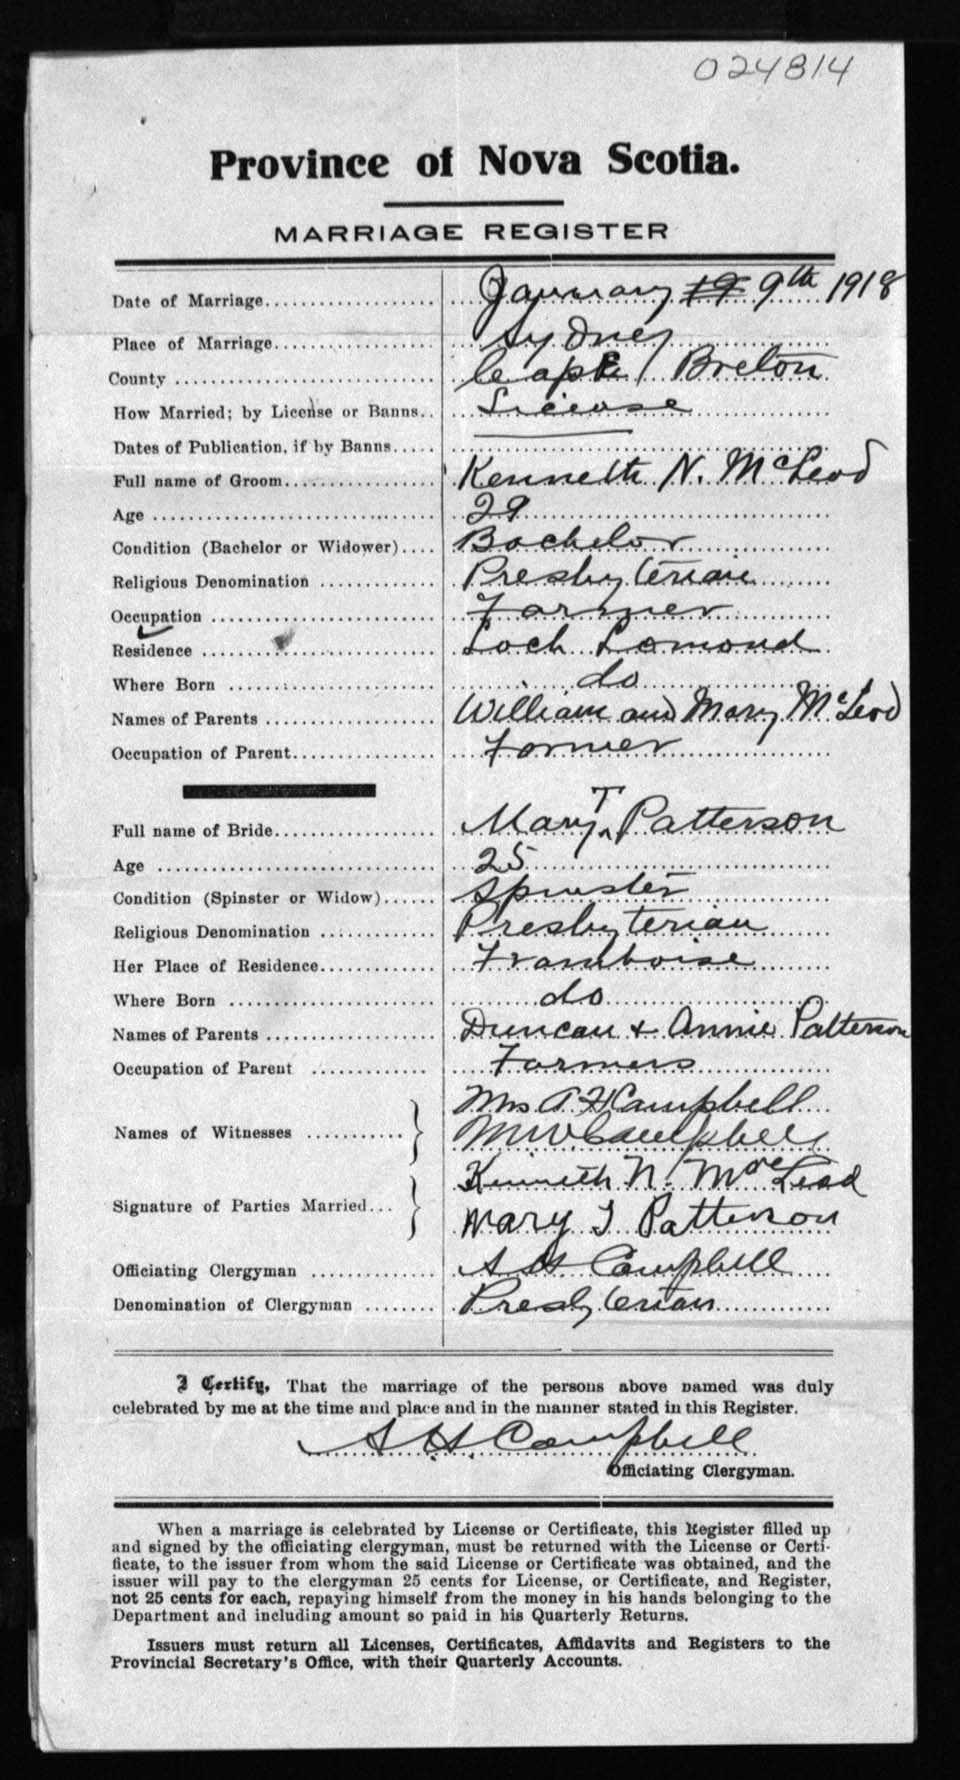 024814
Province of Nova Scotia.
MARRIAGE REGISTER
Date of Marriage.................. January 19 9th 1918
Place of Marriage.................. Sydney
County .................. Cape Breton
How Married; by License or Banns.. License
Dates of Publication, if by Banns.....
Full name of Groom.................. Kenneth N. McLeod
Age .................. 29
Condition (Bachelor or Widower).... Bachelor
Religious Denomination .................. Presbyterian
Occupation .................. Farmer
Residence .................. Loch Lomond
Where Born .................. do
Names of Parents .................. William and Mary McLeod
Occupation of Parent.................. Farmer
Full name of Bride.................. Mary T Patterson
Age .................. 25
Condition (Spinster or Widow)...... Spinster
Religious Denomination .................. Presbyterian
Her Place of Residence.................. Framboise
Where Born .................. do
Names of Parents .................. Duncan + Annie Patterson
Occupation of Parent .................. Farmers
Names of Witnesses .......... Mrs A H Campbell
M W Campbell
Signature of Parties Married... Kenneth N. MacLeod
Mary T Patterson
Officiating Clergyman .................. A H Campbell
Denomination of Clergyman ........ Presbyterian
I Certify, That the marriage of the persons above named was duly
celebrated by me at the time and place and in the manner stated in this Register.
A H Campbell
Officiating Clergyman.
When a marriage is celebrated by License or Certificate, this Register filled up
and signed by the officiating clergyman, must be returned with the License or Certi-
ficate, to the issuer from whom the said License or Certificate was obtained, and the
issuer will pay to the clergyman 25 cents for License, or Certificate, and Register,
not 25 cents for each, repaying himself from the money in his hands belonging to the
Department and including amount so paid in his Quarterly Returns.
Issuers must return all Licenses, Certificates, Affidavits and Registers to the
Provincial Secretary's Office, with their Quarterly Accounts.